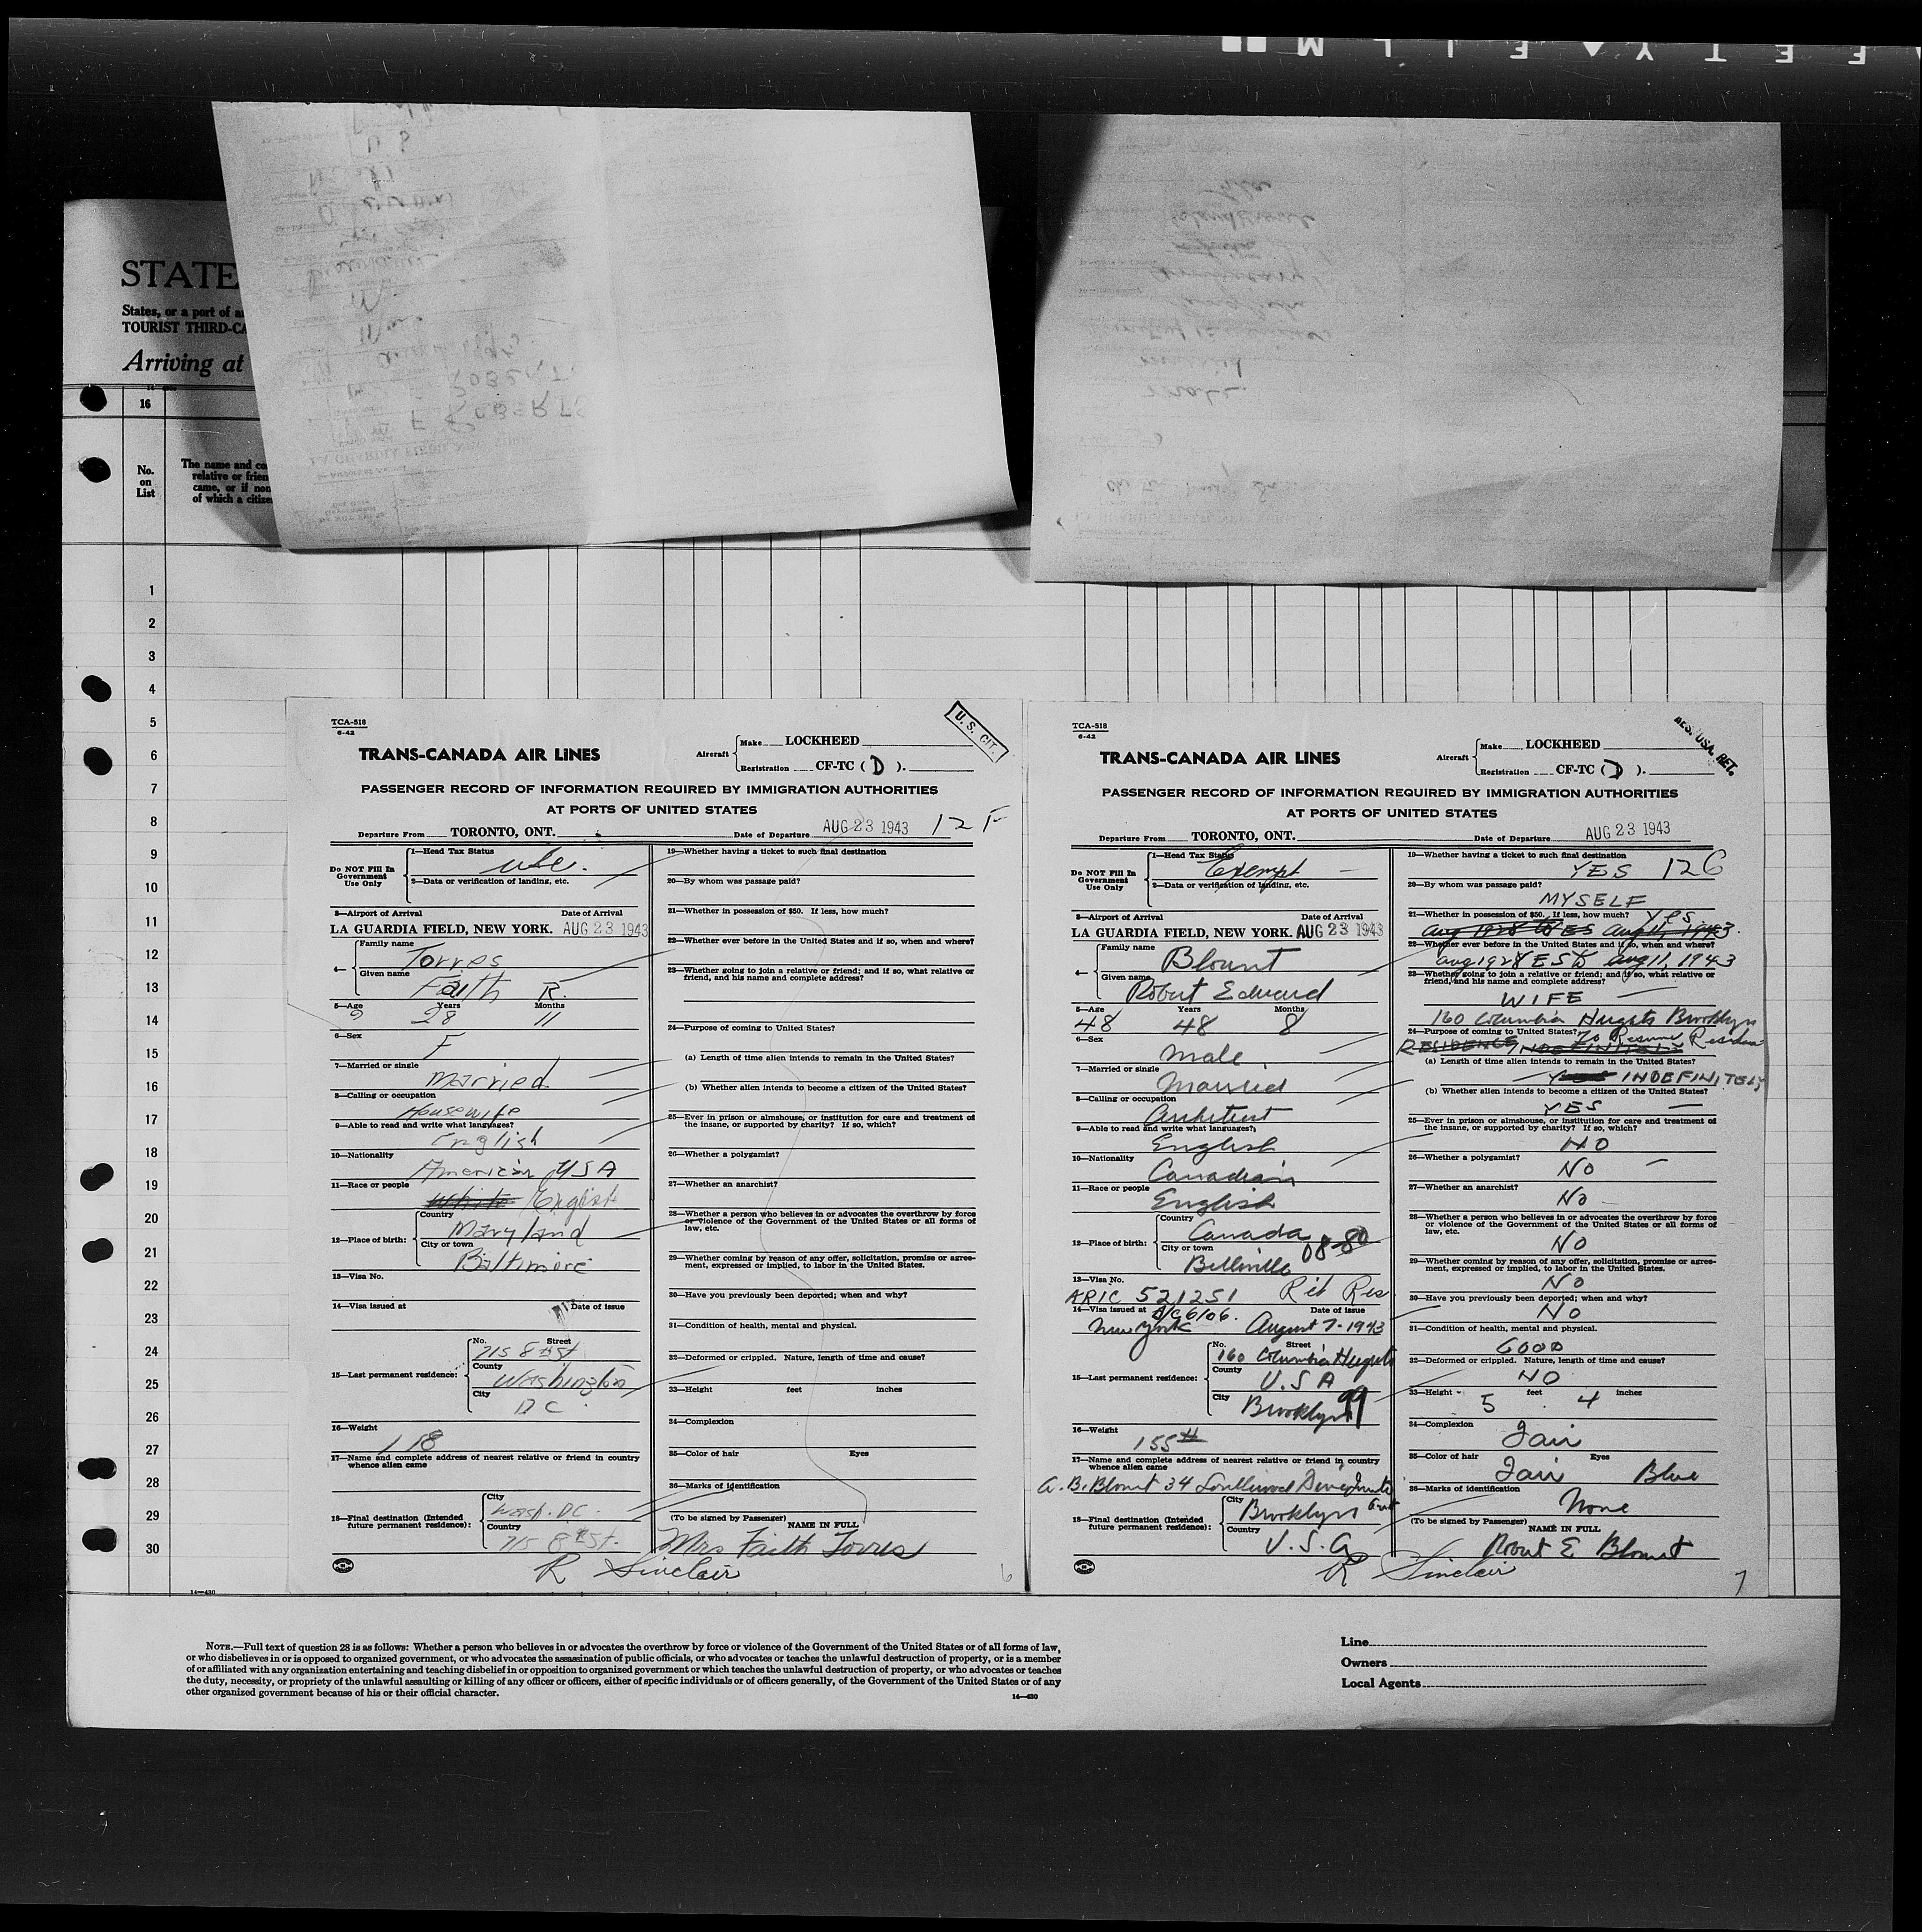 SAFETY FILM
STATE
States, or a port of a
TOURIST THIRD-CA
Arriving at
16
No.
on
List
The name and co
relative or frien
came, or if non
of which a citize
1
2
3
4
5
6
7
8
9
10
11
12
13
14
15
16
17
18
19
20
21
22
23
24
25
26
27
28
29
30
TCA-518
6-42
U. S. CIT.
TRANS-CANADA AIR LINES
Aircraft
Make LOCKHEED
Registration CF-TC ( D ).
PASSENGER RECORD OF INFORMATION REQUIRED BY IMMIGRATION AUTHORITIES
AT PORTS OF UNITED STATES
Departure From TORONTO, ONT. Date of Departure AUG 23 1943 12 F
Do NOT Fill In
Government
Use Only
1—Head Tax Status
2—Data or verification of landing, etc.
3—Airport of Arrival Date of Arrival
LA GUARDIA FIELD, NEW YORK. AUG 23 1943
4— Family name
Torres
Given name
Faith R.
5—Age Years Months
28 11
6—Sex
F
7—Married or single
Married
8—Calling or occupation
Housewife
9—Able to read and write what languages?
English
10—Nationality
American USA
11—Race or people
White English
12—Place of birth:
Country
Maryland
City or town
Baltimore
13—Visa No.
14—Visa issued at Date of issue
15—Last permanent residence:
No. Street
715 8th St
County
Washington
City
DC
16—Weight
118
17—Name and complete address of nearest relative or friend in country
whence alien came
18—Final destination (Intended
future permanent residence):
City
Wash. DC.
Country
715 8th St.
19—Whether having a ticket to such final destination
20—By whom was passage paid?
21—Whether in possession of $50. If less, how much?
22—Whether ever before in the United States and if so, when and where?
23—Whether going to join a relative or friend; and if so, what relative or
friend, and his name and complete address?
24—Purpose of coming to United States?
(a) Length of time alien intends to remain in the United States?
(b) Whether alien intends to become a citizen of the United States?
25—Ever in prison or almshouse, or institution for care and treatment of
the insane, or supported by charity? If so, which?
26—Whether a polygamist?
27—Whether an anarchist?
28—Whether a person who believes in or advocates the overthrow by force
or violence of the Government of the United States or all forms of
law, etc.
29—Whether coming by reason of any offer, solicitation, promise or agree-
ment, expressed or implied, to labor in the United States.
30—Have you previously been deported; when and why?
31—Condition of health, mental and physical.
32—Deformed or crippled. Nature, length of time and cause?
33—Height feet inches
34—Complexion
35—Color of hair Eyes
36—Marks of identification
(To be signed by Passenger) NAME IN FULL
Mrs Faith Torres
R Sinclair
6
TCA-518
6-42
RES. USA. RET.
TRANS-CANADA AIR LINES
Aircraft
Make LOCKHEED
Registration CF-TC ( D ).
PASSENGER RECORD OF INFORMATION REQUIRED BY IMMIGRATION AUTHORITIES
AT PORTS OF UNITED STATES
Departure From TORONTO, ONT. Date of Departure AUG 23 1943
Do NOT Fill In
Government
Use Only
1—Head Tax Status
Exempt
2—Data or verification of landing, etc.
3—Airport of Arrival Date of Arrival
LA GUARDIA FIELD, NEW YORK. AUG 23 1943
4— Family name
Blount
Given name
Robert Edward
5—Age Years Months
48 48 8
6—Sex
Male
7—Married or single
Married
8—Calling or occupation
Architect
9—Able to read and write what languages?
English
10—Nationality
Canadian
11—Race or people
English
12—Place of birth:
Country
Canada
City or town 08-80
Belleville
13—Visa No.
ARIC 521251 Ret Res.
14—Visa issued at 6106. Date of issue
New York August 7-1943
15—Last permanent residence:
No. Street
160 Columbia Heights
County
U.S A
City
Brooklyn 99
16—Weight
155 #
17—Name and complete address of nearest relative or friend in country
whence alien came
A. B. Blount 34
18—Final destination (Intended
future permanent residence):
City
Brooklyn
Country
U.S.A
19—Whether having a ticket to such final destination
YES 12G
20—By whom was passage paid?
MYSELF
21—Whether in possession of $50. If less, how much? Yes
Aug 1928 to Aug 11, 1943.
22—Whether ever before in the United States and if so, when and where?
Aug 1928 Aug 11, 1943
23—Whether going to join a relative or friend; and if so, what relative or
friend, and his name and complete address?
WIFE
160 Columbia Heights Brooklyn
24—Purpose of coming to United States? To Resume Residence
RESIDENCE INDEFINITELY
(a) Length of time alien intends to remain in the United States?
YES INDEFINITELY
(b) Whether alien intends to become a citizen of the United States?
YES
25—Ever in prison or almshouse, or institution for care and treatment of
the insane, or supported by charity? If so, which?
NO
26—Whether a polygamist?
No
27—Whether an anarchist?
No
28—Whether a person who believes in or advocates the overthrow by force
or violence of the Government of the United States or all forms of
law, etc.
NO
29—Whether coming by reason of any offer, solicitation, promise or agree-
ment, expressed or implied, to labor in the United States.
NO
30—Have you previously been deported; when and why?
NO
31—Condition of health, mental and physical.
GOOD
32—Deformed or crippled. Nature, length of time and cause?
NO
33—Height feet inches
5 4
34—Complexion
Fair
35—Color of hair Eyes
Fair Blue
36—Marks of identification
None
(To be signed by Passenger) NAME IN FULL
Robert E Blount
R Sinclair
7
14—430
NOTE.—Full text of question 28 is as follows: Whether a person who believes in or advocates the overthrow by force or violence of the Government of the United States or of all forms of law,
or who disbelieves in or is opposed to organized government, or who advocates the assassination of public officials, or who advocates or teaches the unlawful destruction of property, or is a member
of or affiliated with any organization entertaining and teaching disbelief in or opposition to organized government or which teaches the unlawful destruction of property, or who advocates or teaches
the duty, necessity, or propriety of the unlawful assaulting or killing of any officer or officers, either of specific individuals or of officers generally, of the Government of the United States or of any
other organized government because of his or their official character.
14—430
Line
Owners
Local Agents